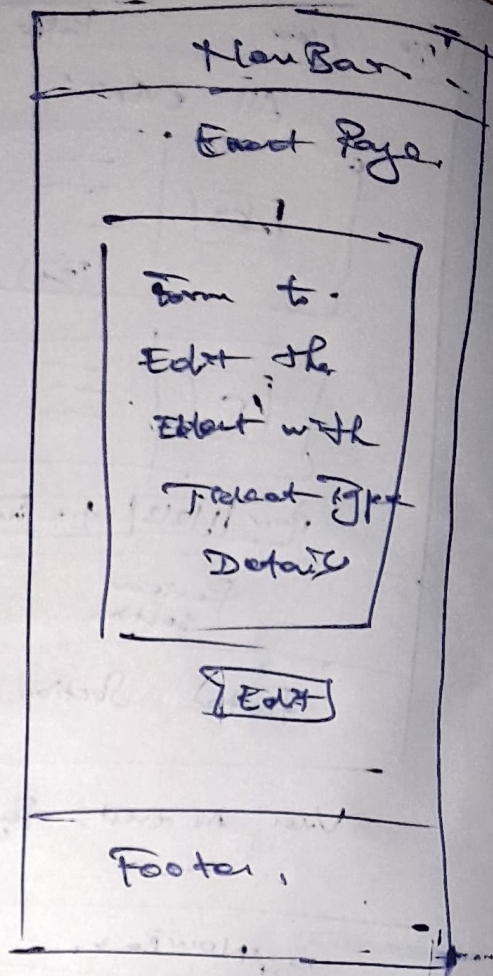 NavBar
Event Page
Form to
Edit the
Event with
Ticket Type
Details
Edit
Footer